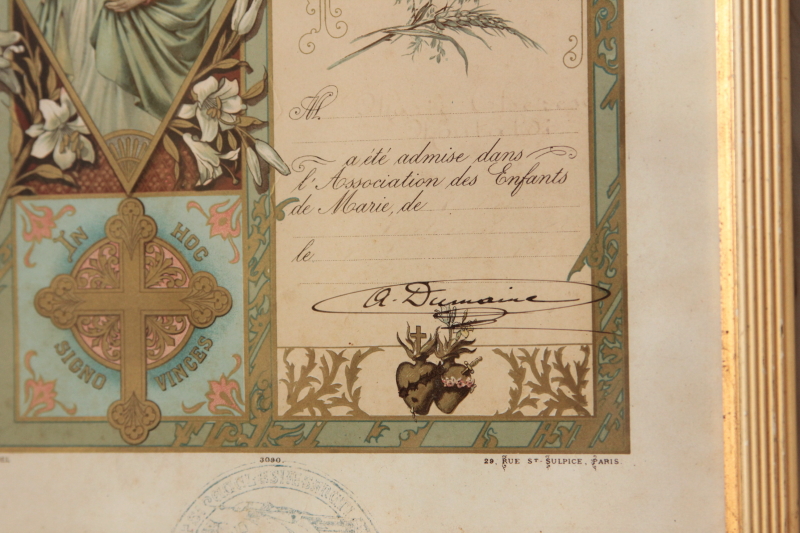 M.
a été admise dans
l'Association des Enfants
de Marie, de
le
A. Dumaine
IN HOC
SIGNO VINCES
3090.
29, RUE ST-SULPICE, PARIS.